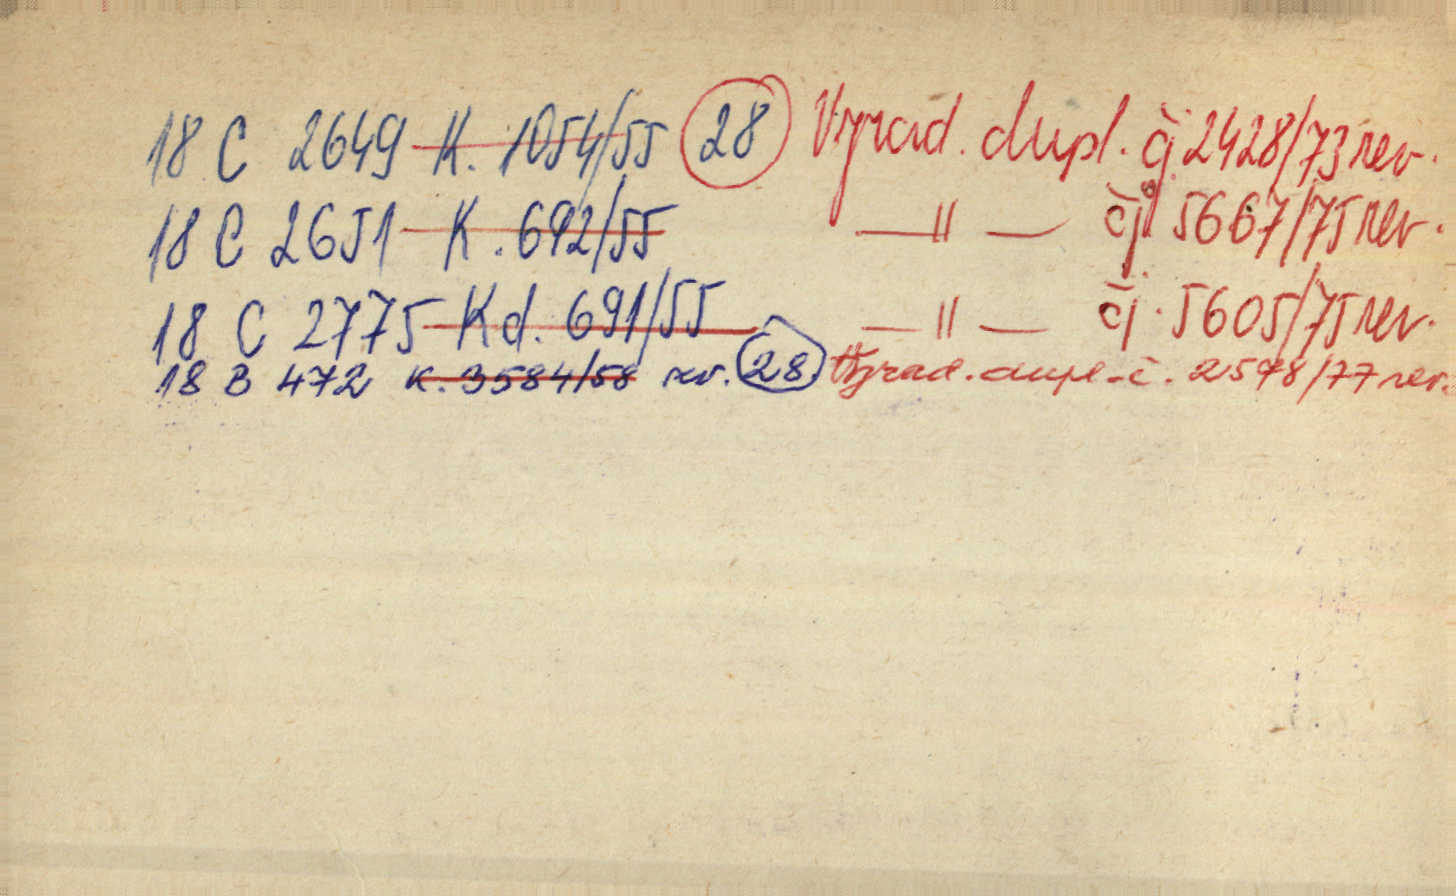 18 C 2649 K. 1054/55 28 Vyrad. dupl. čj 2428/73 rev.
18 C 2651 K. 692/55 — " — čj 5667/75 rev.
18 C 2775 Kd. 691/55 — " — čj. 5605/75 rev.
18 B 472 K. 3584/58 rev. 28 Vyrad. dupl. č. 2598/77 rev.